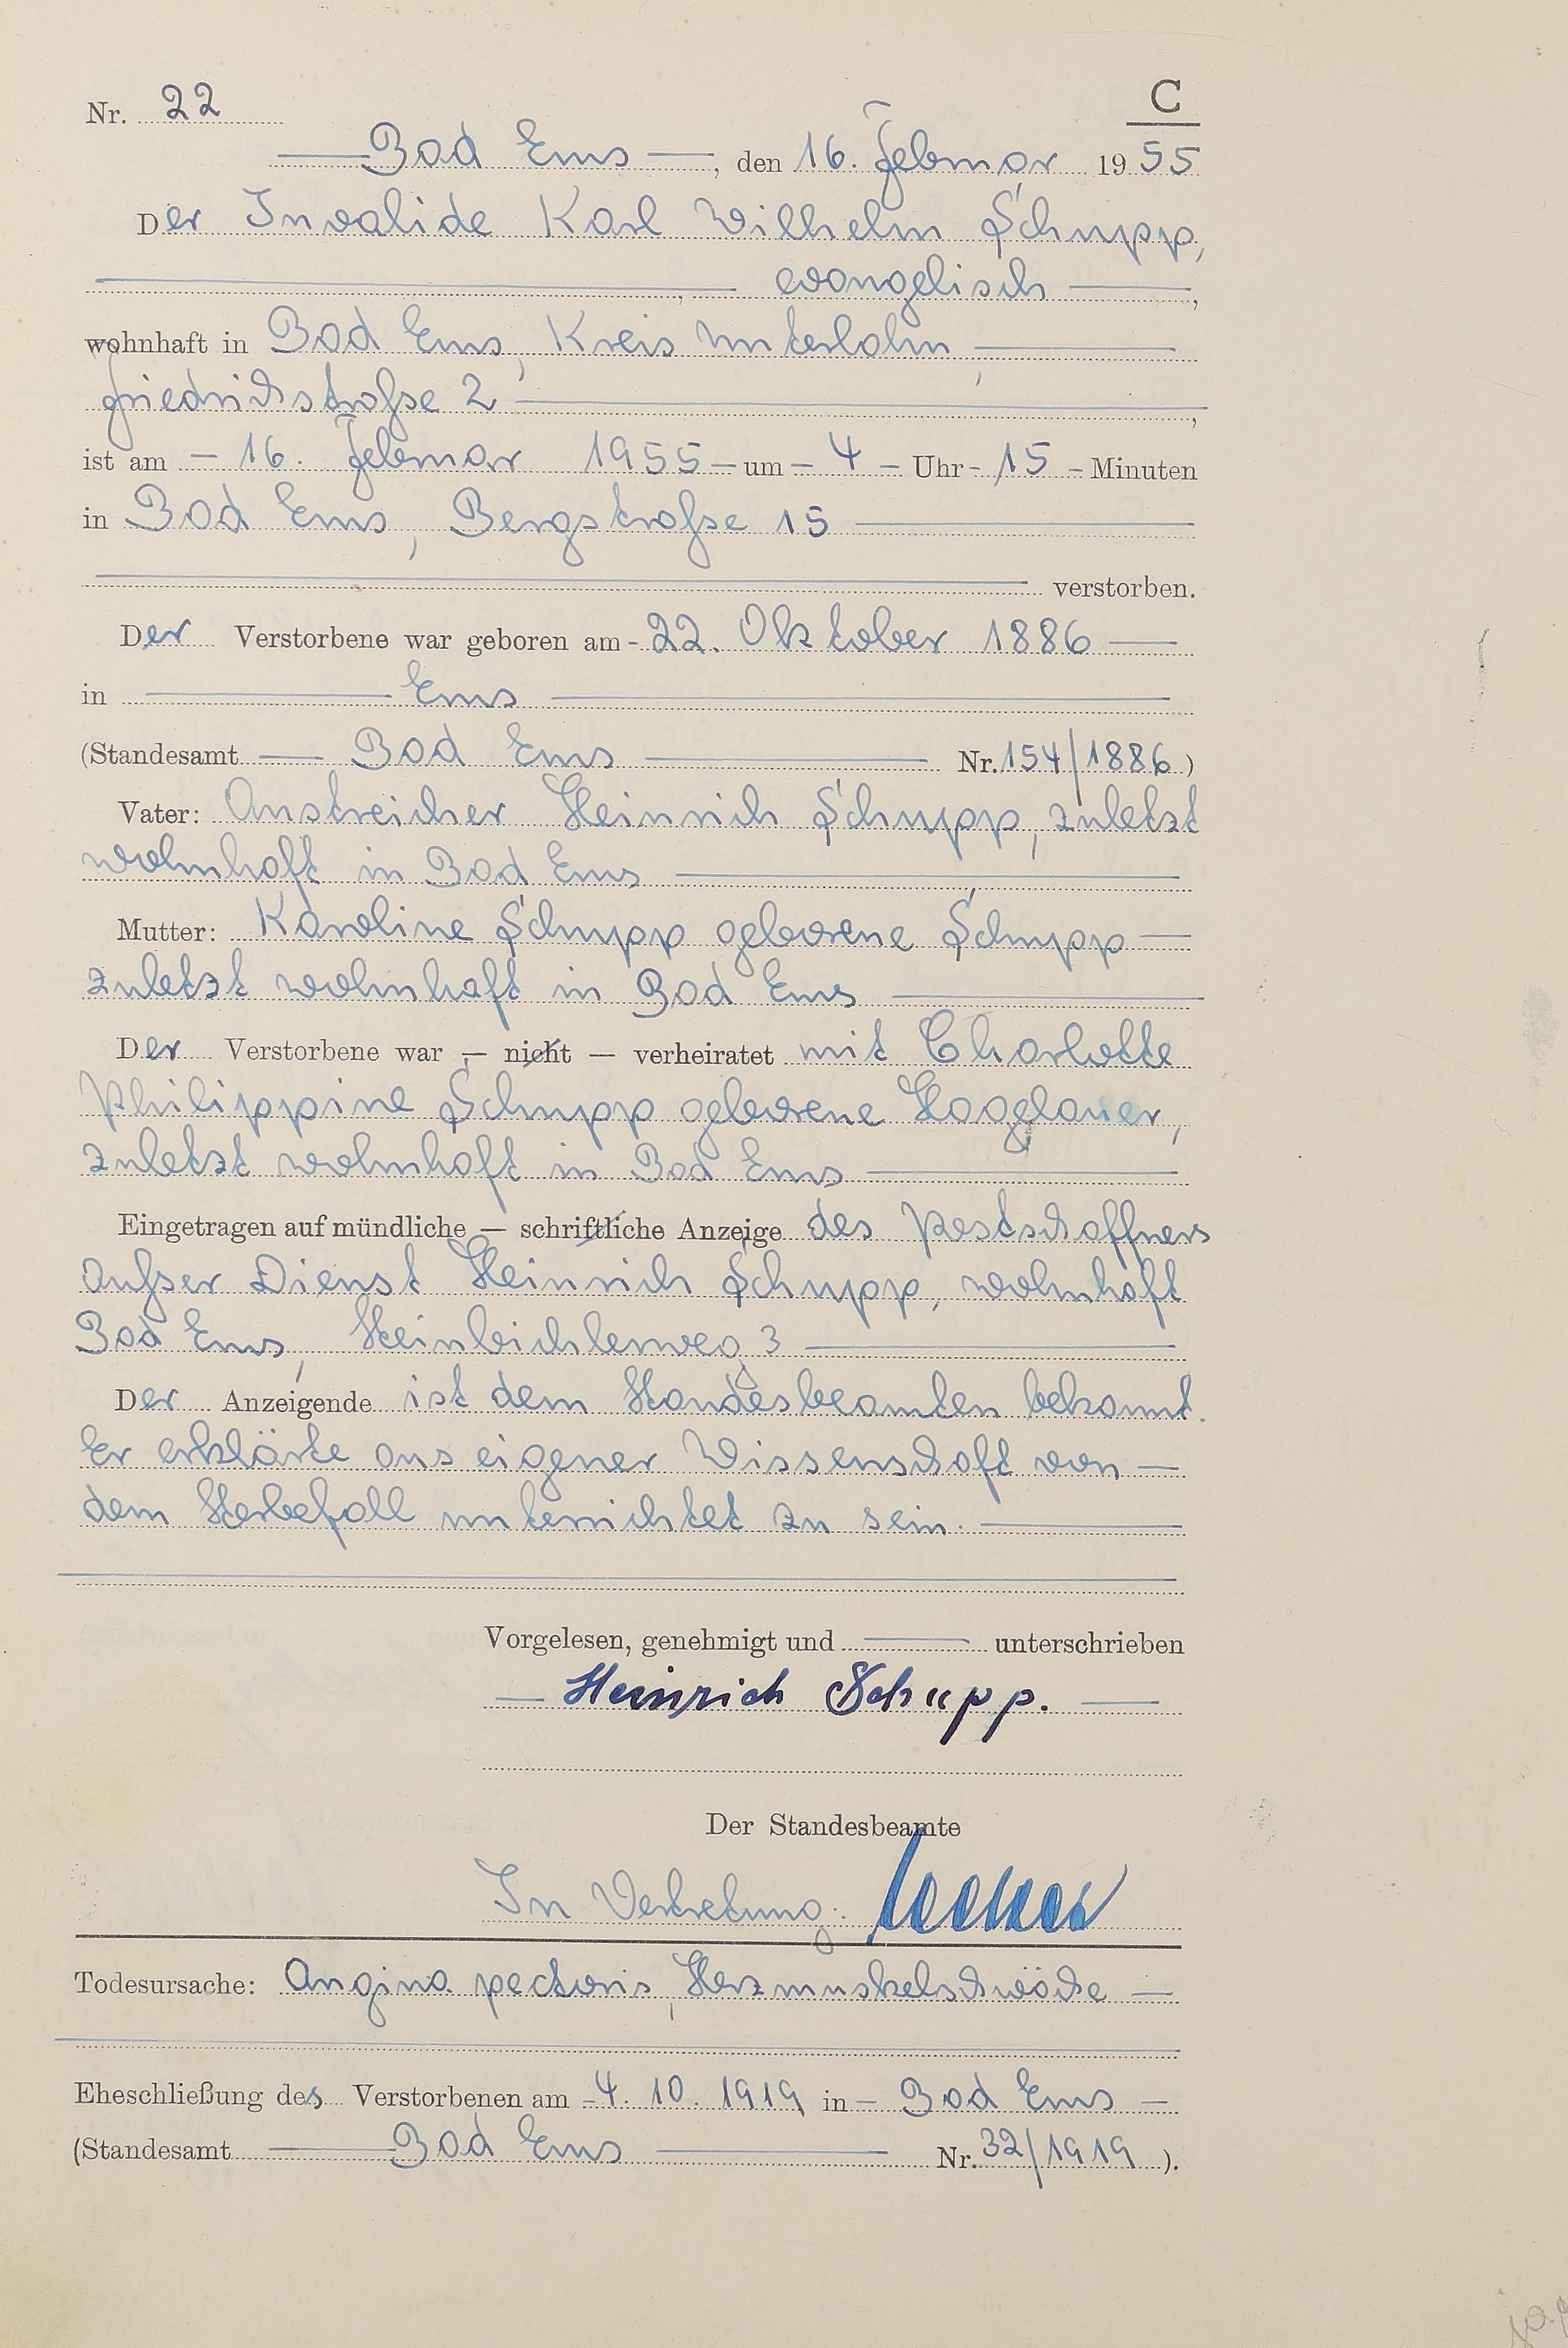 C
Nr. 22
Bad Ems, den 16. Februar 1955
Der Invalide Karl Wilhelm Schupp,
evangelisch,
wohnhaft in Bad Ems, Kreis Unterlahn,
Friedrichstraße 2,
ist am - 16. Februar 1955 - um - 4 - Uhr - 15 - Minuten
in Bad Ems, Bergstraße 15
verstorben.
Der Verstorbene war geboren am - 22. Oktober 1886
in Ems
(Standesamt Bad Ems Nr. 154/1886)
Vater: Anstreicher Heinrich Schupp, zuletzt
wohnhaft in Bad Ems
Mutter: Karoline Schupp geborene Schupp
zuletzt wohnhaft in Bad Ems
Der Verstorbene war — nicht — verheiratet mit Charlotte
Philippine Schupp geborene Haxelauer,
zuletzt wohnhaft in Bad Ems
Eingetragen auf mündliche — schriftliche Anzeige des Postschaffners
außer Dienst Heinrich Schupp, wohnhaft
Bad Ems, 3
Der Anzeigende ist dem Standesbeamten bekannt.
Er erklärte aus eigener Wissenschaft von
dem Sterbefall unterrichtet zu sein.
Vorgelesen, genehmigt und unterschrieben
Heinrich Schupp.
Der Standesbeamte
In Vertretung:
Todesursache: Angina pectoris, Herzmuskelschwäche
Eheschließung des Verstorbenen am - 4. 10. 1919 in - Bad Ems
(Standesamt Bad Ems Nr. 32/1919).